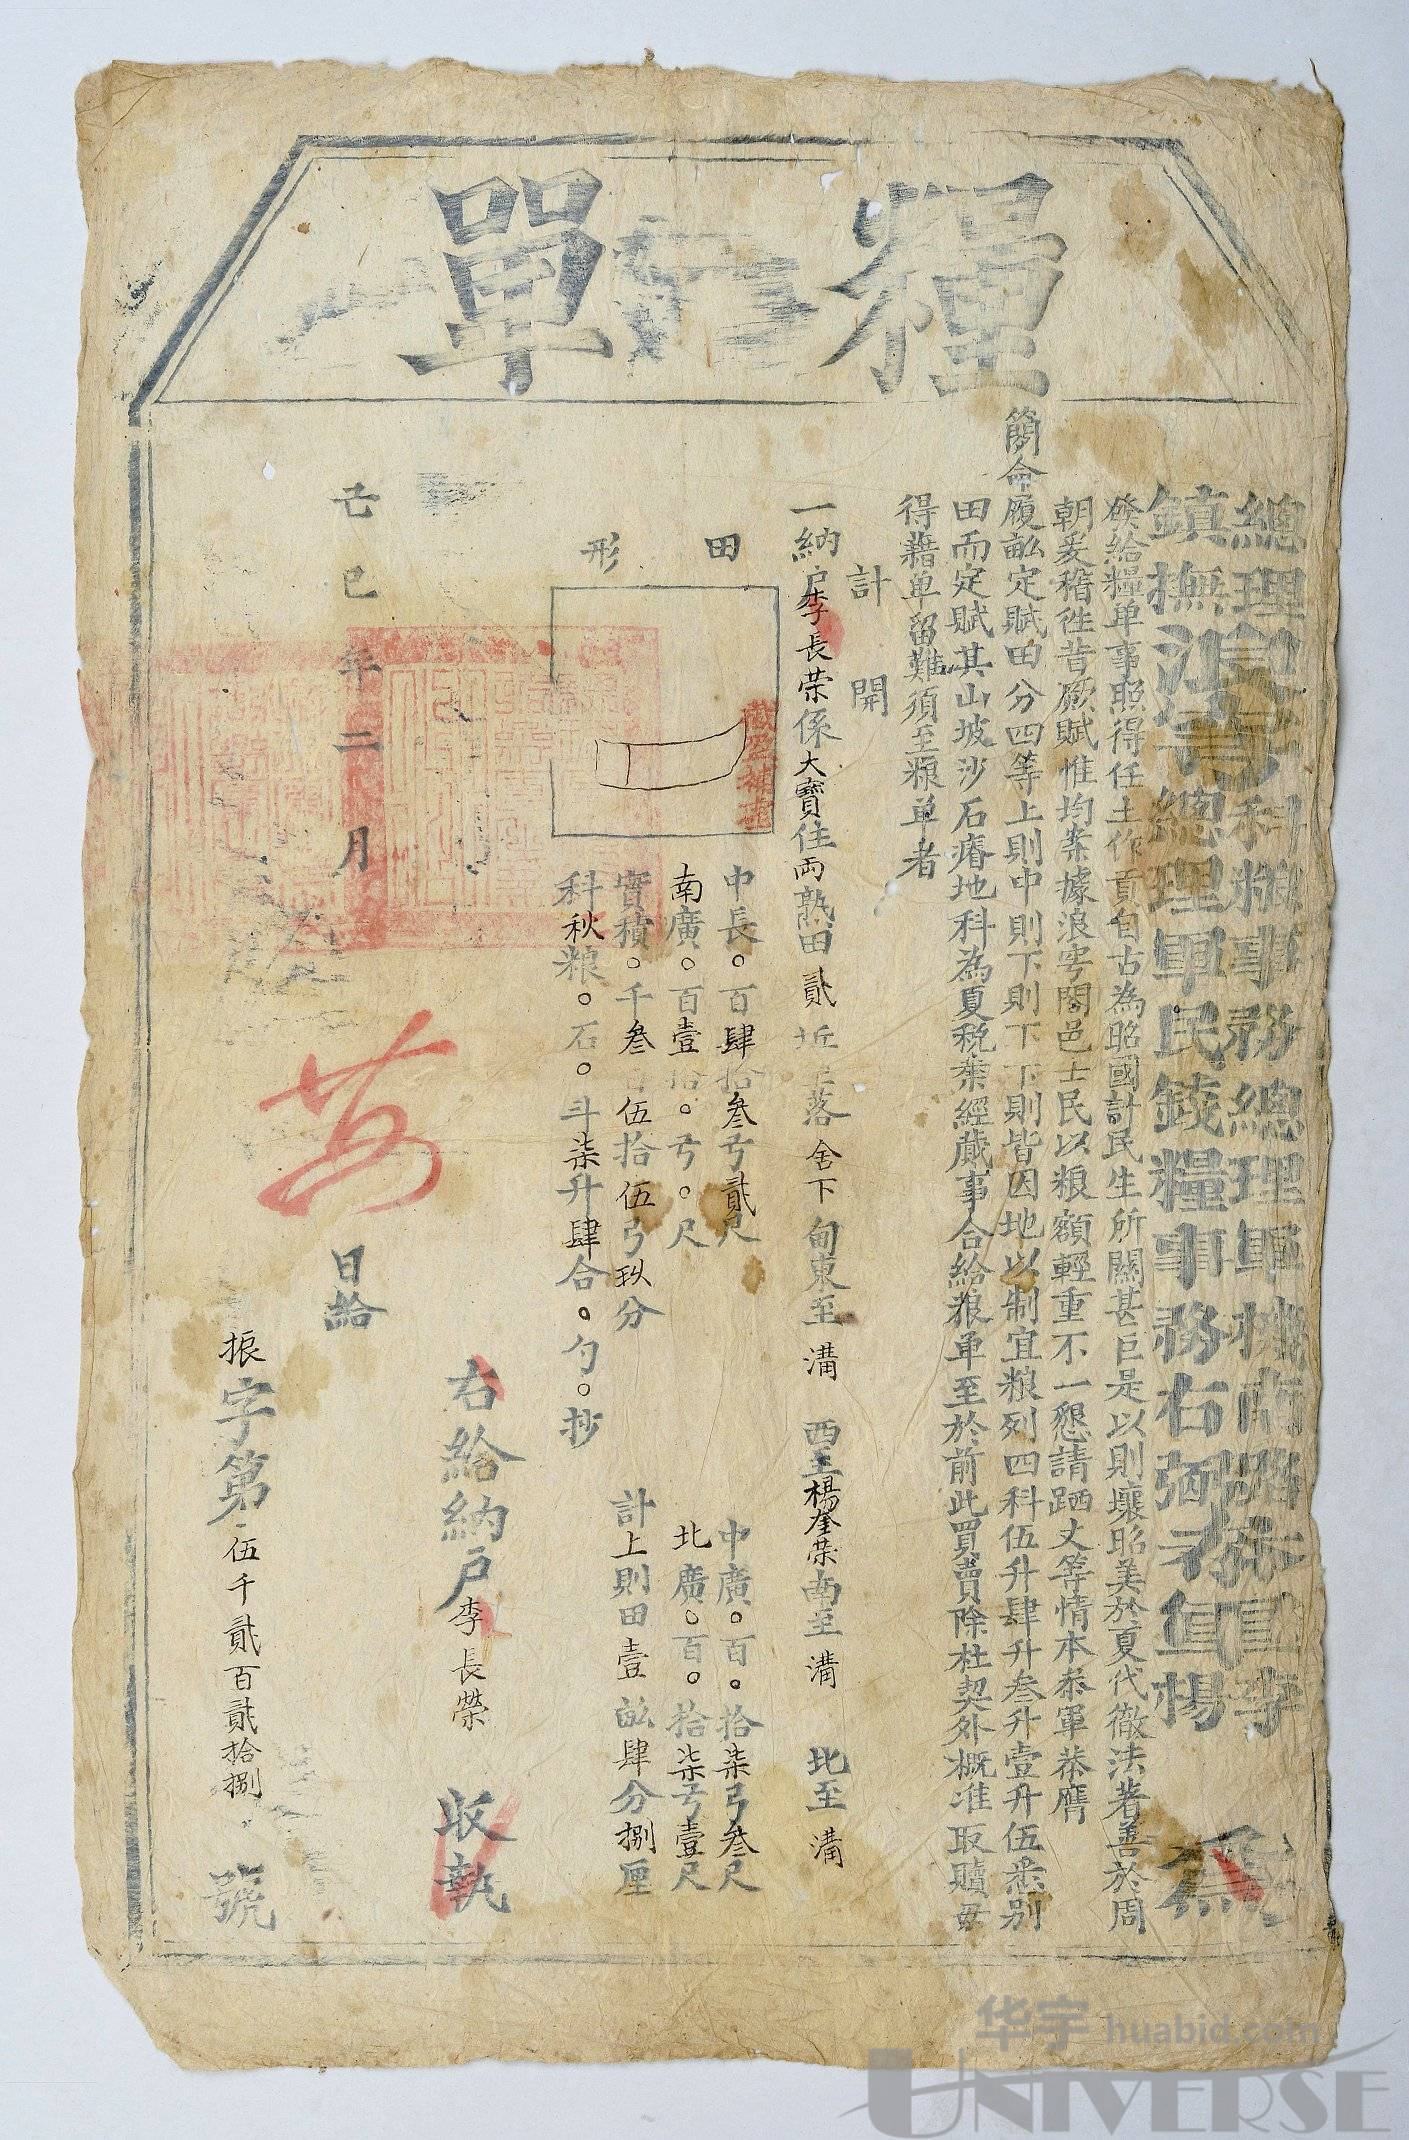 糧單
總理 科糧事務總理軍機 李 為
鎮撫 總理軍民錢糧事務右 楊
發給糧单事照得任土作貢自古為昭國計民生所關甚巨是以則壤昭美於夏代徹法著善於周
朝爰稽徃昔厥賦惟均案據浪穹閤邑士民以粮額輕重不一懇請跴丈等情本叅軍恭膺
簡命履畝定賦田分四等上則中則下則下下則皆因地以制宜粮列四科伍升肆升叁升壹升伍悉别
田而定賦其山坡沙石瘠地科為夏税葉經蕆事合給粮单至於前此買賣除杜契外概准取贖毋
得藉单留難須至粮单者
計開
一納户李長荣係大寶住両熟田貳坵坐落舍下甸東至溝 西至楊奎荣南至溝 北至溝
田形
中長○百肆拾叁弓貳尺 中廣○百○拾柒弓叁尺
南廣○百壹拾○弓○尺 北廣○百○拾柒弓壹尺
實積○千叁百伍拾伍弓玖分 計上則田壹畝肆分捌厘
科秋粮○石○斗柒升肆合○勺○抄
右給納户李長榮 収執
己巳年二月 日給
振字第伍千貳百貳拾捌號
华宇 huabid.com
UNIVERSE